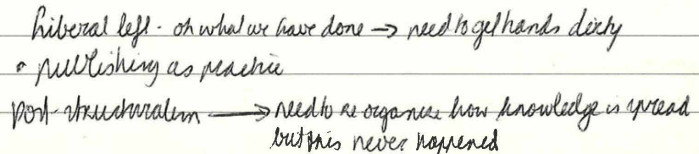 Liberal left - oh what we have done → need to get hands dirty
• publishing as practice
post-structuralism → need to re organise how knowledge is spread
but this never happened